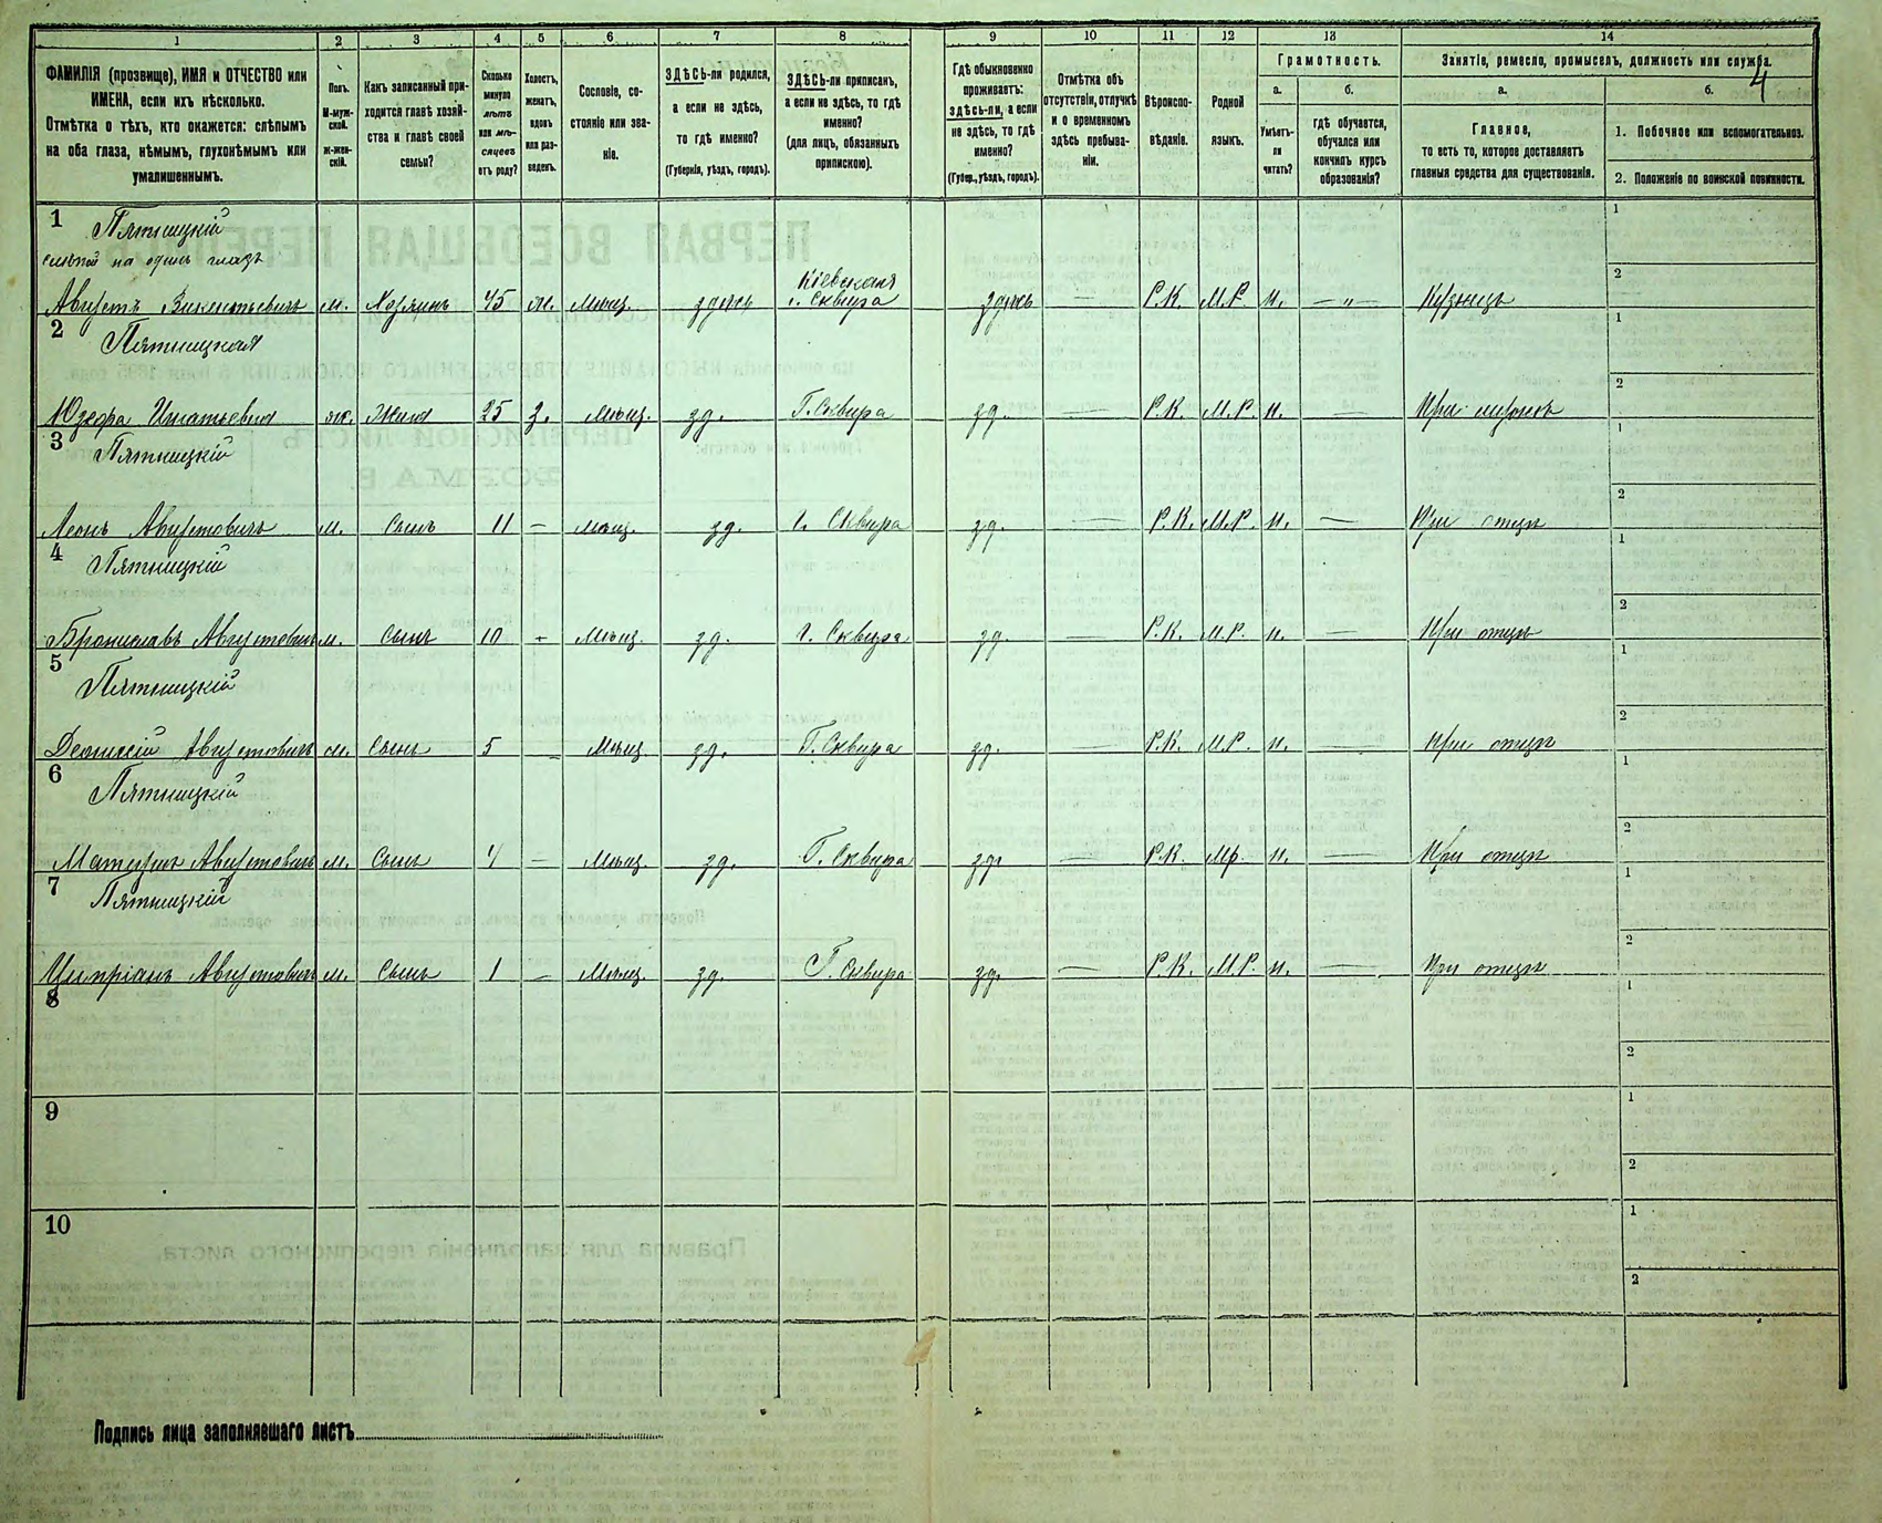 1 2 3 4 5 6 7 8 9 10 11 12 13 14
ФАМИЛІЯ (прозвище), ИМЯ и ОТЧЕСТВО или
ИМЕНА, если ихъ нѣсколько.
Отмѣтка о тѣхъ, кто окажется: слѣпымъ
на оба глаза, нѣмымъ, глухонѣмымъ или
умалишеннымъ.
Полъ.
М-муж-
ской.
Ж-жен-
скій.
Какъ записанный при-
ходится главѣ хозяй-
ства и главѣ своей
семьи?
Сколько
минуло
лѣтъ
или мѣ-
сяцевъ
отъ роду?
Холостъ,
женатъ,
вдовъ
или раз-
веденъ.
Сословіе, со-
стояніе или зва-
ніе.
ЗДѢСЬ-ли родился,
а если не здѣсь,
то гдѣ именно?
(Губернія, уѣздъ, городъ).
ЗДѢСЬ-ли приписанъ,
а если не здѣсь, то гдѣ
именно?
(для лицъ, обязанныхъ
припискою).
Гдѣ обыкновенно
проживаетъ:
ЗДѢСЬ-ли, а если
не здѣсь, то гдѣ
именно?
(Губер., уѣздъ, городъ).
Отмѣтка объ
отсутствіи, отлучкѣ
и о временномъ
здѣсь пребыва-
ніи.
Вѣроиспо-
вѣданіе.
Родной
языкъ.
Грамотность.
а.
Умѣетъ-
ли
читать?
б.
гдѣ обучается,
обучался или
кончилъ курсъ
образованія?
Занятіе, ремесло, промыселъ, должность или служба.
4
а.
Главное,
то есть то, которое доставляетъ
главныя средства для существованія.
б.
1. Побочное или вспомогательное.
2. Положеніе по воинской повинности.
1 Пятницкій
слѣпой на одинъ глазъ
Кіевская
Августъ Викентьевичъ м. Хозяинъ 45 ж. Мѣщ. здѣсь г. Сквира здѣсь — Р.К. М.Р. н. — „ — Кузнецъ
2 Пятницкая
Юзефа Игнатьевна ж. Жена 25 з. Мѣщ. зд. Г. Сквира зд. — Р.К. М.Р. н. При мужѣ
3 Пятницкій
Леонъ Августовичъ м. Сынъ 11 — Мѣщ. зд. г. Сквира зд. — Р.К. М.Р. н. — При отцѣ
4 Пятницкій
Брониславъ Августовичъ м. Сынъ 10 — Мѣщ. зд. г. Сквира зд. — Р.К. М.Р. н. — При отцѣ
5 Пятницкій
Августовичъ м. Сынъ 5 — Мѣщ. зд. Г. Сквира зд. — Р.К. М.Р. н. — При отцѣ
6 Пятницкій
Августовичъ м. Сынъ 4 — Мѣщ. зд. Г. Сквира зд. — Р.К. Мр. н. — При отцѣ
7 Пятницкій
Ципріанъ Августовичъ м. Сынъ 1 — Мѣщ. зд. Г. Сквира зд. — Р.К. М.Р. н. — При отцѣ
8
9
10
1
2
1
2
1
2
1
2
1
2
1
2
1
2
1
2
1
2
1
2
Подпись лица заполнявшаго листъ